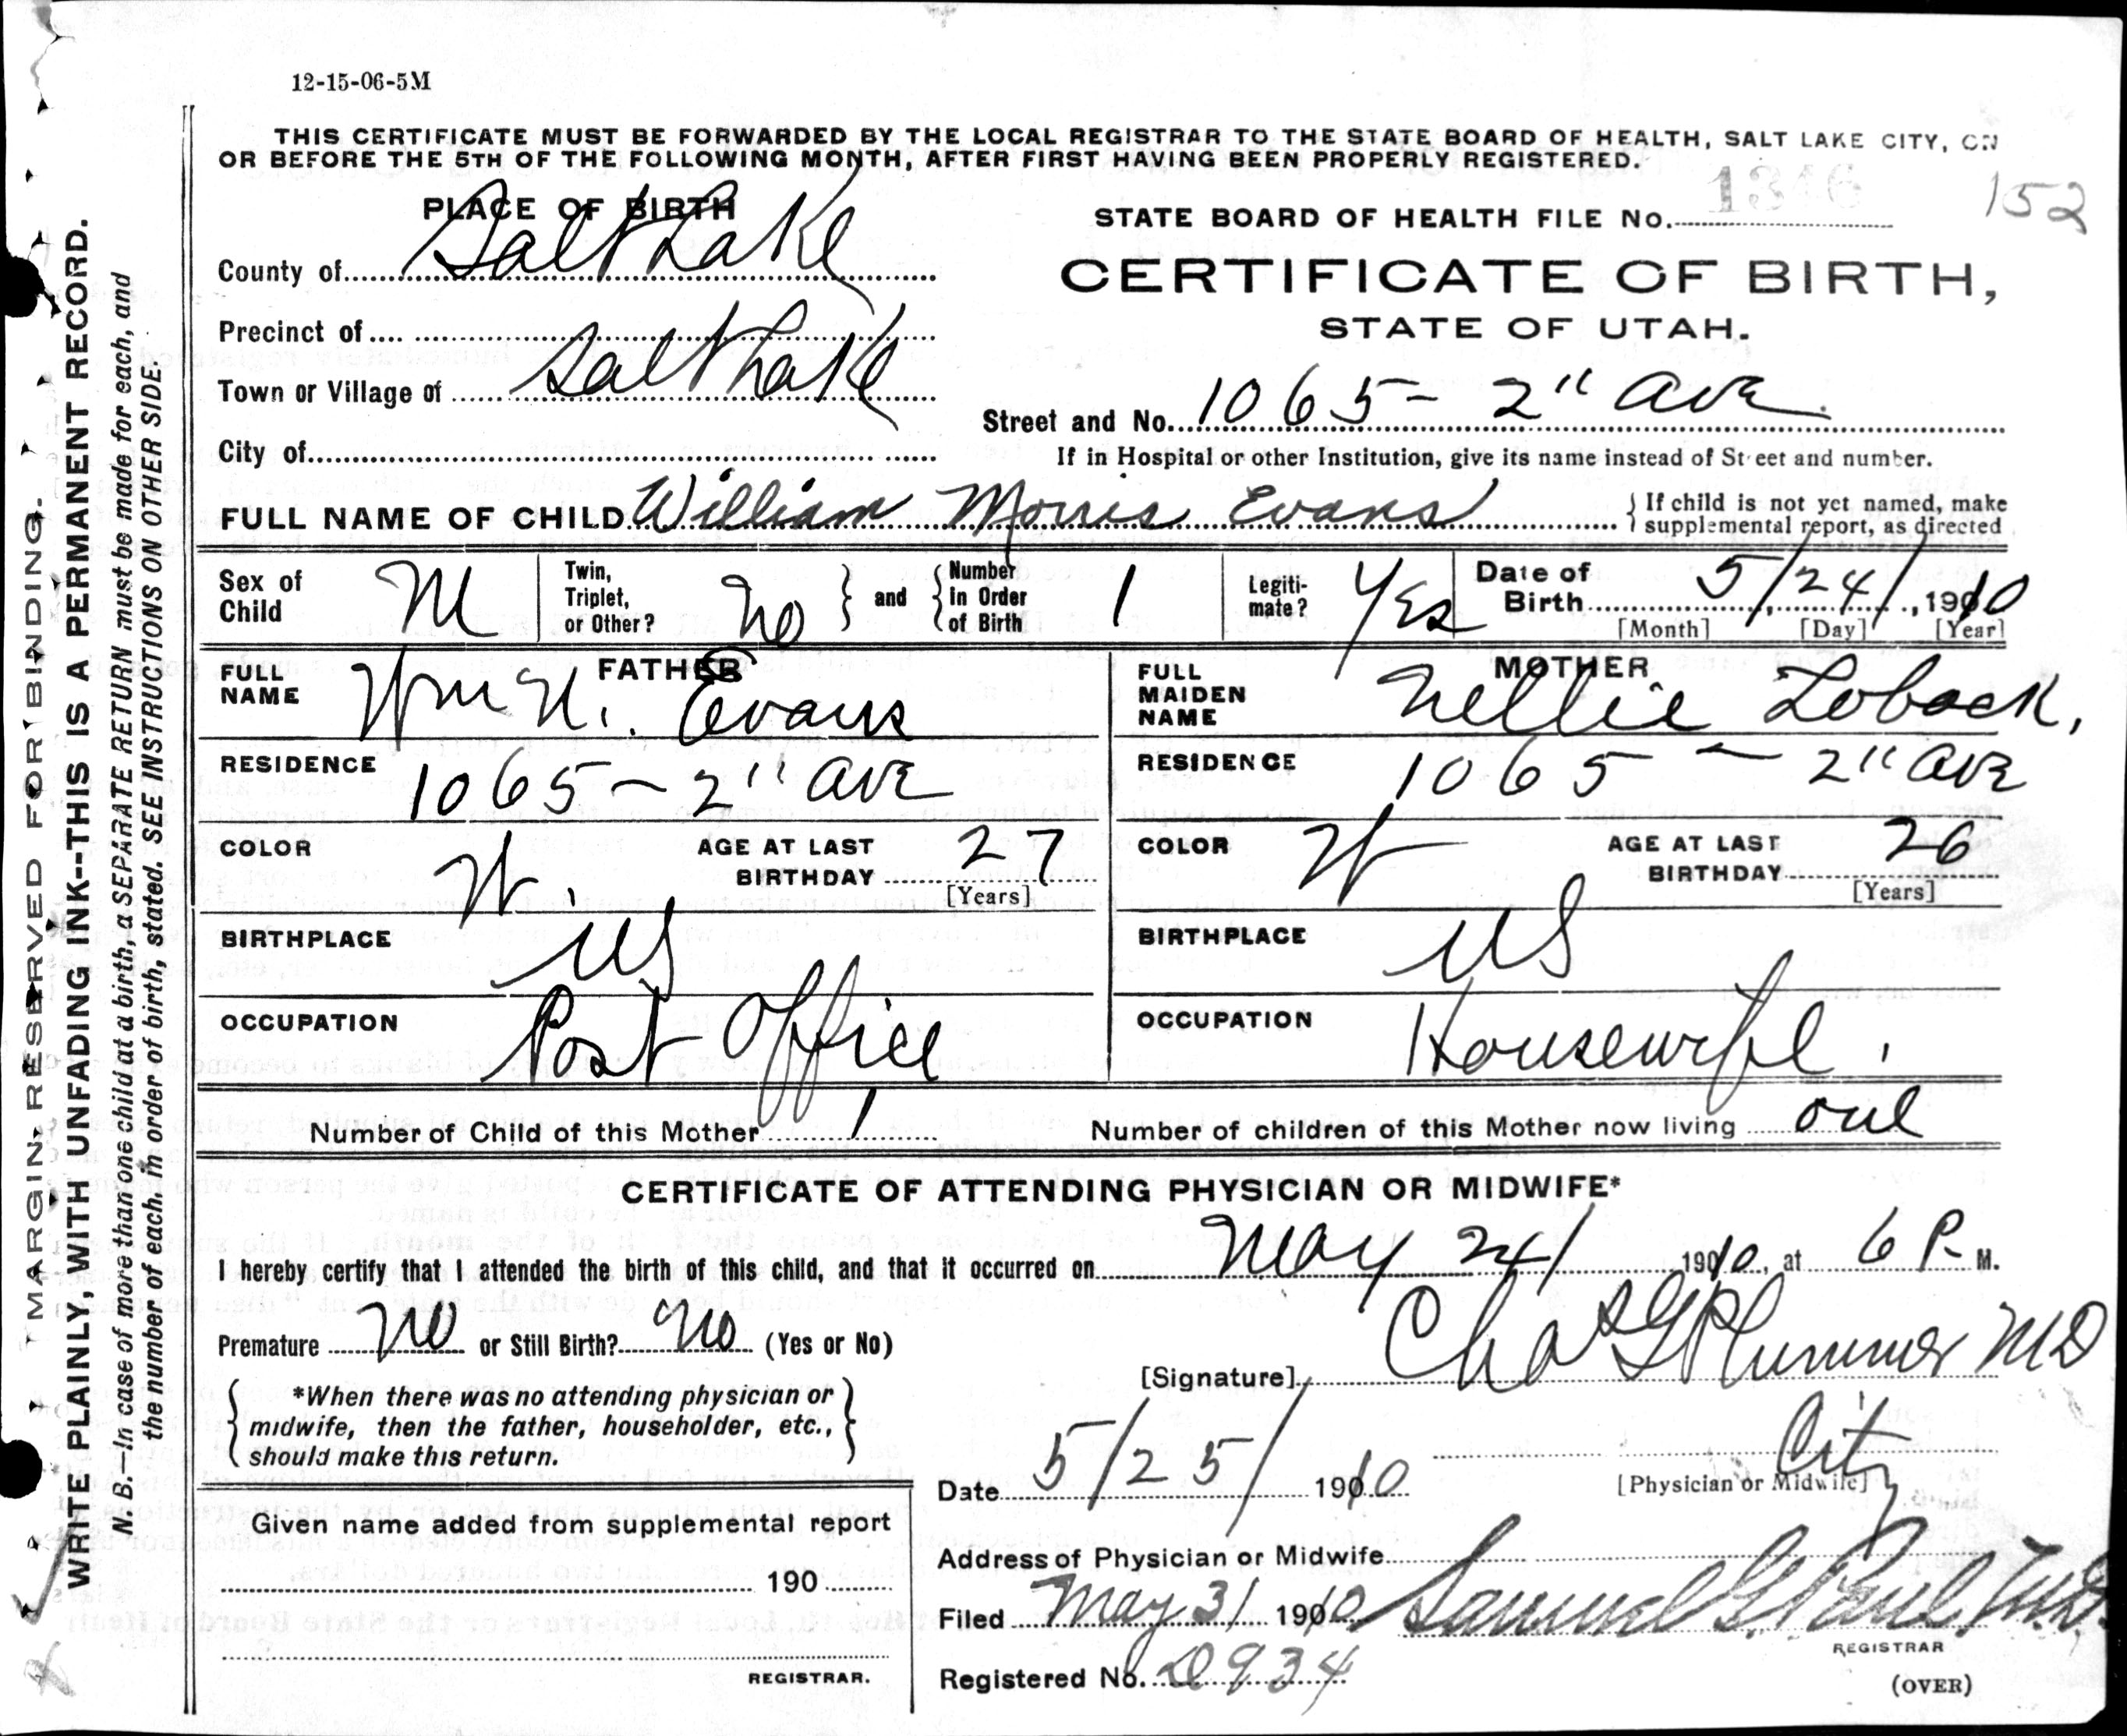 12-15-06-5M
THIS CERTIFICATE MUST BE FORWARDED BY THE LOCAL REGISTRAR TO THE STATE BOARD OF HEALTH, SALT LAKE CITY, ON
OR BEFORE THE 5TH OF THE FOLLOWING MONTH, AFTER FIRST HAVING BEEN PROPERLY REGISTERED.
1346 152
PLACE OF BIRTH
STATE BOARD OF HEALTH FILE No.
County of Salt Lake
CERTIFICATE OF BIRTH,
STATE OF UTAH.
Precinct of
Town or Village of Salt Lake
Street and No. 1065 - 2" Ave.
City of
If in Hospital or other Institution, give its name instead of Street and number.
FULL NAME OF CHILD William Morris Evans { If child is not yet named, make
supplemental report, as directed
Sex of Child M
Twin, Triplet, or Other? No } and { Number In Order of Birth 1
Legiti-mate? Yes
Date of Birth 5/24/, 1910
[Month] [Day] [Year]
FATHER
FULL NAME Wm N. Evans
RESIDENCE 1065 - 2" Ave
COLOR W
AGE AT LAST BIRTHDAY 27
[Years]
BIRTHPLACE US
OCCUPATION Post Office
MOTHER
FULL MAIDEN NAME Nellie Loback.
RESIDENCE 1065 - 2" Ave
COLOR W
AGE AT LAST BIRTHDAY 26
[Years]
BIRTHPLACE US
OCCUPATION Housewife.
Number of Child of this Mother 1
Number of children of this Mother now living one
CERTIFICATE OF ATTENDING PHYSICIAN OR MIDWIFE*
I hereby certify that I attended the birth of this child, and that it occurred on May 24/ 1910, at 6 P. M.
Premature No or Still Birth? No (Yes or No)
[Signature] Chas G Plummer MD
{ *When there was no attending physician or
midwife, then the father, householder, etc.,
should make this return. }
Date 5/25/ 1910
[Physician or Midwife]
Address of Physician or Midwife City
Given name added from supplemental report
190
REGISTRAR.
Filed May 31 1910 Samuel G. Paul, M.D.
REGISTRAR
Registered No. D934
(OVER)
MARGIN RESERVED FOR BINDING.
WRITE PLAINLY, WITH UNFADING INK--THIS IS A PERMANENT RECORD.
N. B.—In case of more than one child at a birth, a SEPARATE RETURN must be made for each, and
the number of each, in order of birth, stated. SEE INSTRUCTIONS ON OTHER SIDE.